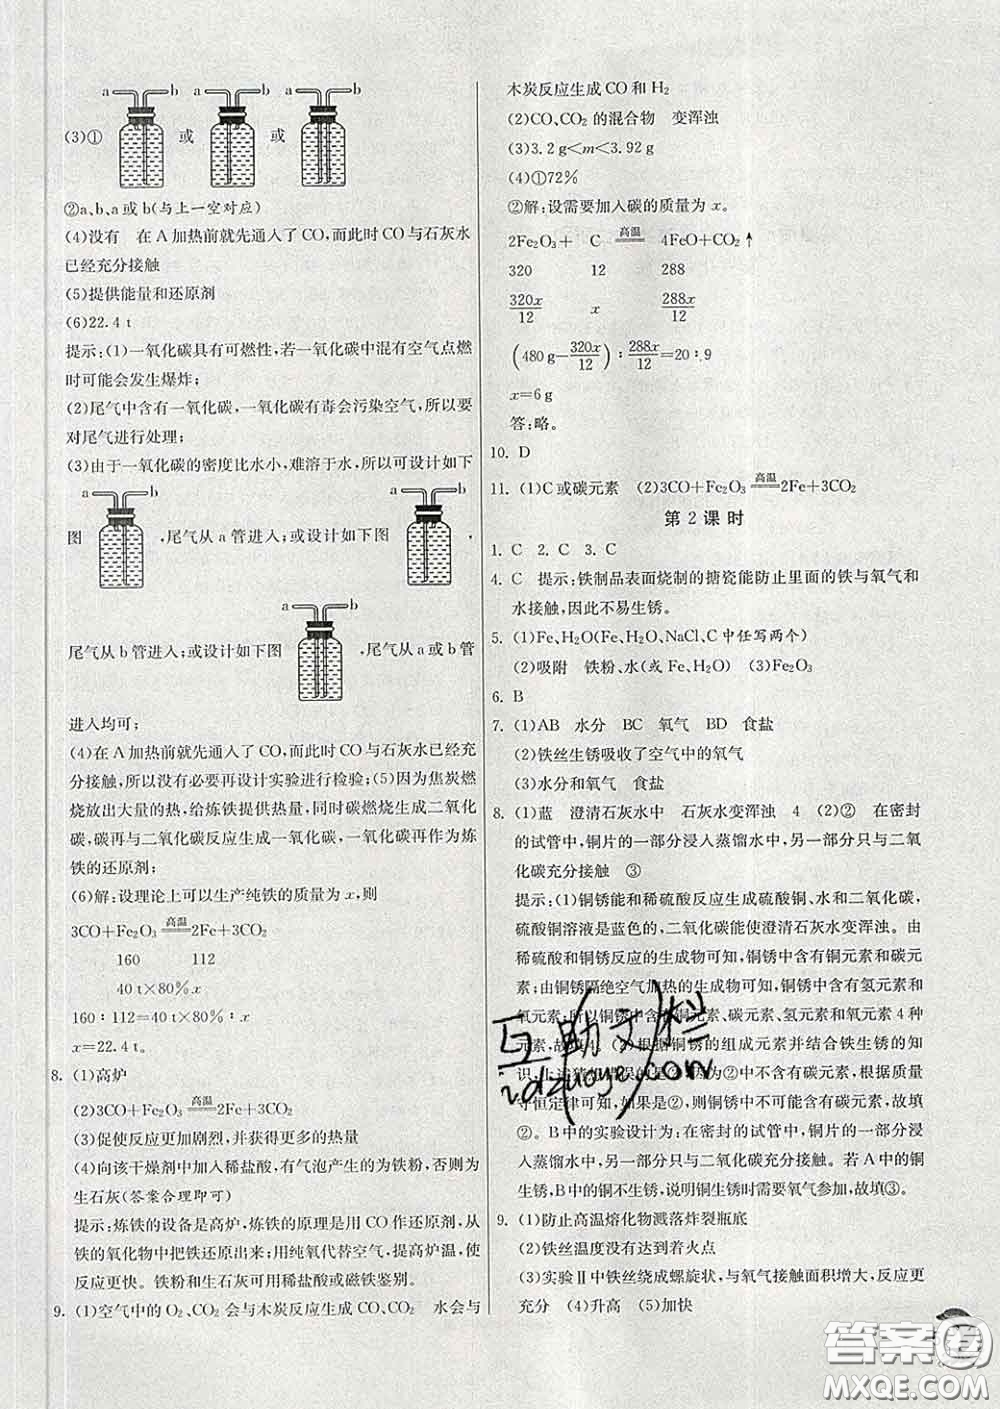 a b a b a b
(3)① 或 或
②a、b、a或b(与上一空对应)
(4)没有 在A加热前就先通入了CO,而此时CO与石灰水
已经充分接触
(5)提供能量和还原剂
(6)22.4 t
提示:(1)一氧化碳具有可燃性,若一氧化碳中混有空气点燃
时可能会发生爆炸;
(2)尾气中含有一氧化碳,一氧化碳有毒会污染空气,所以要
对尾气进行处理;
(3)由于一氧化碳的密度比水小,难溶于水,所以可设计如下
a b a b
图 ,尾气从a管进入;或设计如下图 ,
a b
尾气从b管进入;或设计如下图 ,尾气从a或b管
进入均可;
(4)在A加热前就先通入了CO,而此时CO与石灰水已经充
分接触,所以没有必要再设计实验进行检验;(5)因为焦炭燃
烧放出大量的热,给炼铁提供热量,同时碳燃烧生成二氧化
碳,碳再与二氧化碳反应生成一氧化碳,一氧化碳再作为炼
铁的还原剂;
(6)解:设理论上可以生产纯铁的质量为x,则
3CO+Fe₂O₃ 高温 2Fe+3CO₂
160 112
40 t×80% x
160:112=40 t×80%:x
x=22.4 t。
8. (1)高炉
(2)3CO+Fe₂O₃ 高温 2Fe+3CO₂
(3)促使反应更加剧烈,并获得更多的热量
(4)向该干燥剂中加入稀盐酸,有气泡产生的为铁粉,否则为
生石灰(答案合理即可)
提示:炼铁的设备是高炉,炼铁的原理是用CO作还原剂,从
铁的氧化物中把铁还原出来;用纯氧代替空气,提高炉温,使
反应更快。铁粉和生石灰可用稀盐酸或磁铁鉴别。
9. (1)空气中的O₂、CO₂会与木炭反应生成CO、CO₂ 水会与
木炭反应生成CO和H₂
(2)CO、CO₂的混合物 变浑浊
(3)3.2 g<m<3.92 g
(4)①72%
②解:设需要加入碳的质量为x。
2Fe₂O₃+ C 高温 4FeO+CO₂↑
320 12 288
320x/12 x 288x/12
(480 g-320x/12):288x/12=20:9
x=6 g
答:略。
10. D
11. (1)C或碳元素 (2)3CO+Fe₂O₃ 高温 2Fe+3CO₂
第2课时
1. C 2. C 3. C
4. C 提示:铁制品表面烧制的搪瓷能防止里面的铁与氧气和
水接触,因此不易生锈。
5. (1)Fe、H₂O(Fe、H₂O、NaCl、C中任写两个)
(2)吸附 铁粉、水(或Fe、H₂O) (3)Fe₂O₃
6. B
7. (1)AB 水分 BC 氧气 BD 食盐
(2)铁丝生锈吸收了空气中的氧气
(3)水分和氧气 食盐
8. (1)蓝 澄清石灰水中 石灰水变浑浊 4 (2)② 在密封
的试管中,铜片的一部分浸入蒸馏水中,另一部分只与二氧
化碳充分接触 ③
提示:(1)铜锈能和稀硫酸反应生成硫酸铜、水和二氧化碳,
硫酸铜溶液是蓝色的,二氧化碳能使澄清石灰水变浑浊。由
稀硫酸和铜锈反应的生成物可知,铜锈中含有铜元素和碳元
素;由铜锈隔绝空气加热的生成物可知,铜锈中含有氢元素和
氧元素;所以铜锈中含有铜元素、碳元素、氢元素和氧元素4种
元素,故填4。(2)根据铜锈的组成元素并结合铁生锈的知
识,上述猜想错误的是②,因为②中不含碳元素,根据质量
守恒定律可知,如果是②,则铜锈中不可能含有碳元素,故填
②。B中的实验设计为:在密封的试管中,铜片的一部分浸
入蒸馏水中,另一部分只与二氧化碳充分接触。若A中的铜
生锈,B中的铜不生锈,说明铜生锈时需要氧气参加,故填③。
9. (1)防止高温熔化物溅落炸裂瓶底
(2)铁丝温度没有达到着火点
(3)实验Ⅱ中铁丝绕成螺旋状,与氧气接触面积增大,反应更
充分 (4)升高 (5)加快
互助文栏
答案圈
MXQE.COM